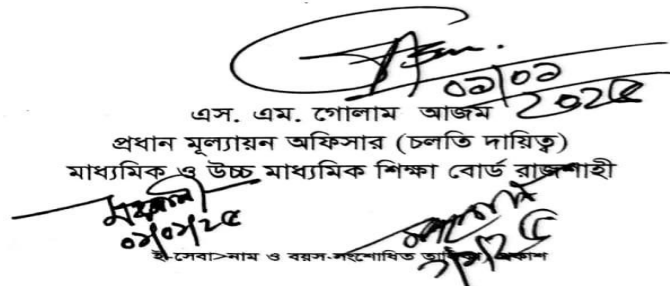 ০২/০২
২০২৫
এস. এম. গোলাম আজম
প্রধান মূল্যায়ন অফিসার (চলতি দায়িত্ব)
মাধ্যমিক ও উচ্চ মাধ্যমিক শিক্ষা বোর্ড রাজশাহী
০২/০২/২৫
২/২/২৫
ই-সেবা>নাম ও বয়স-সংশোধিত প্রকাশ